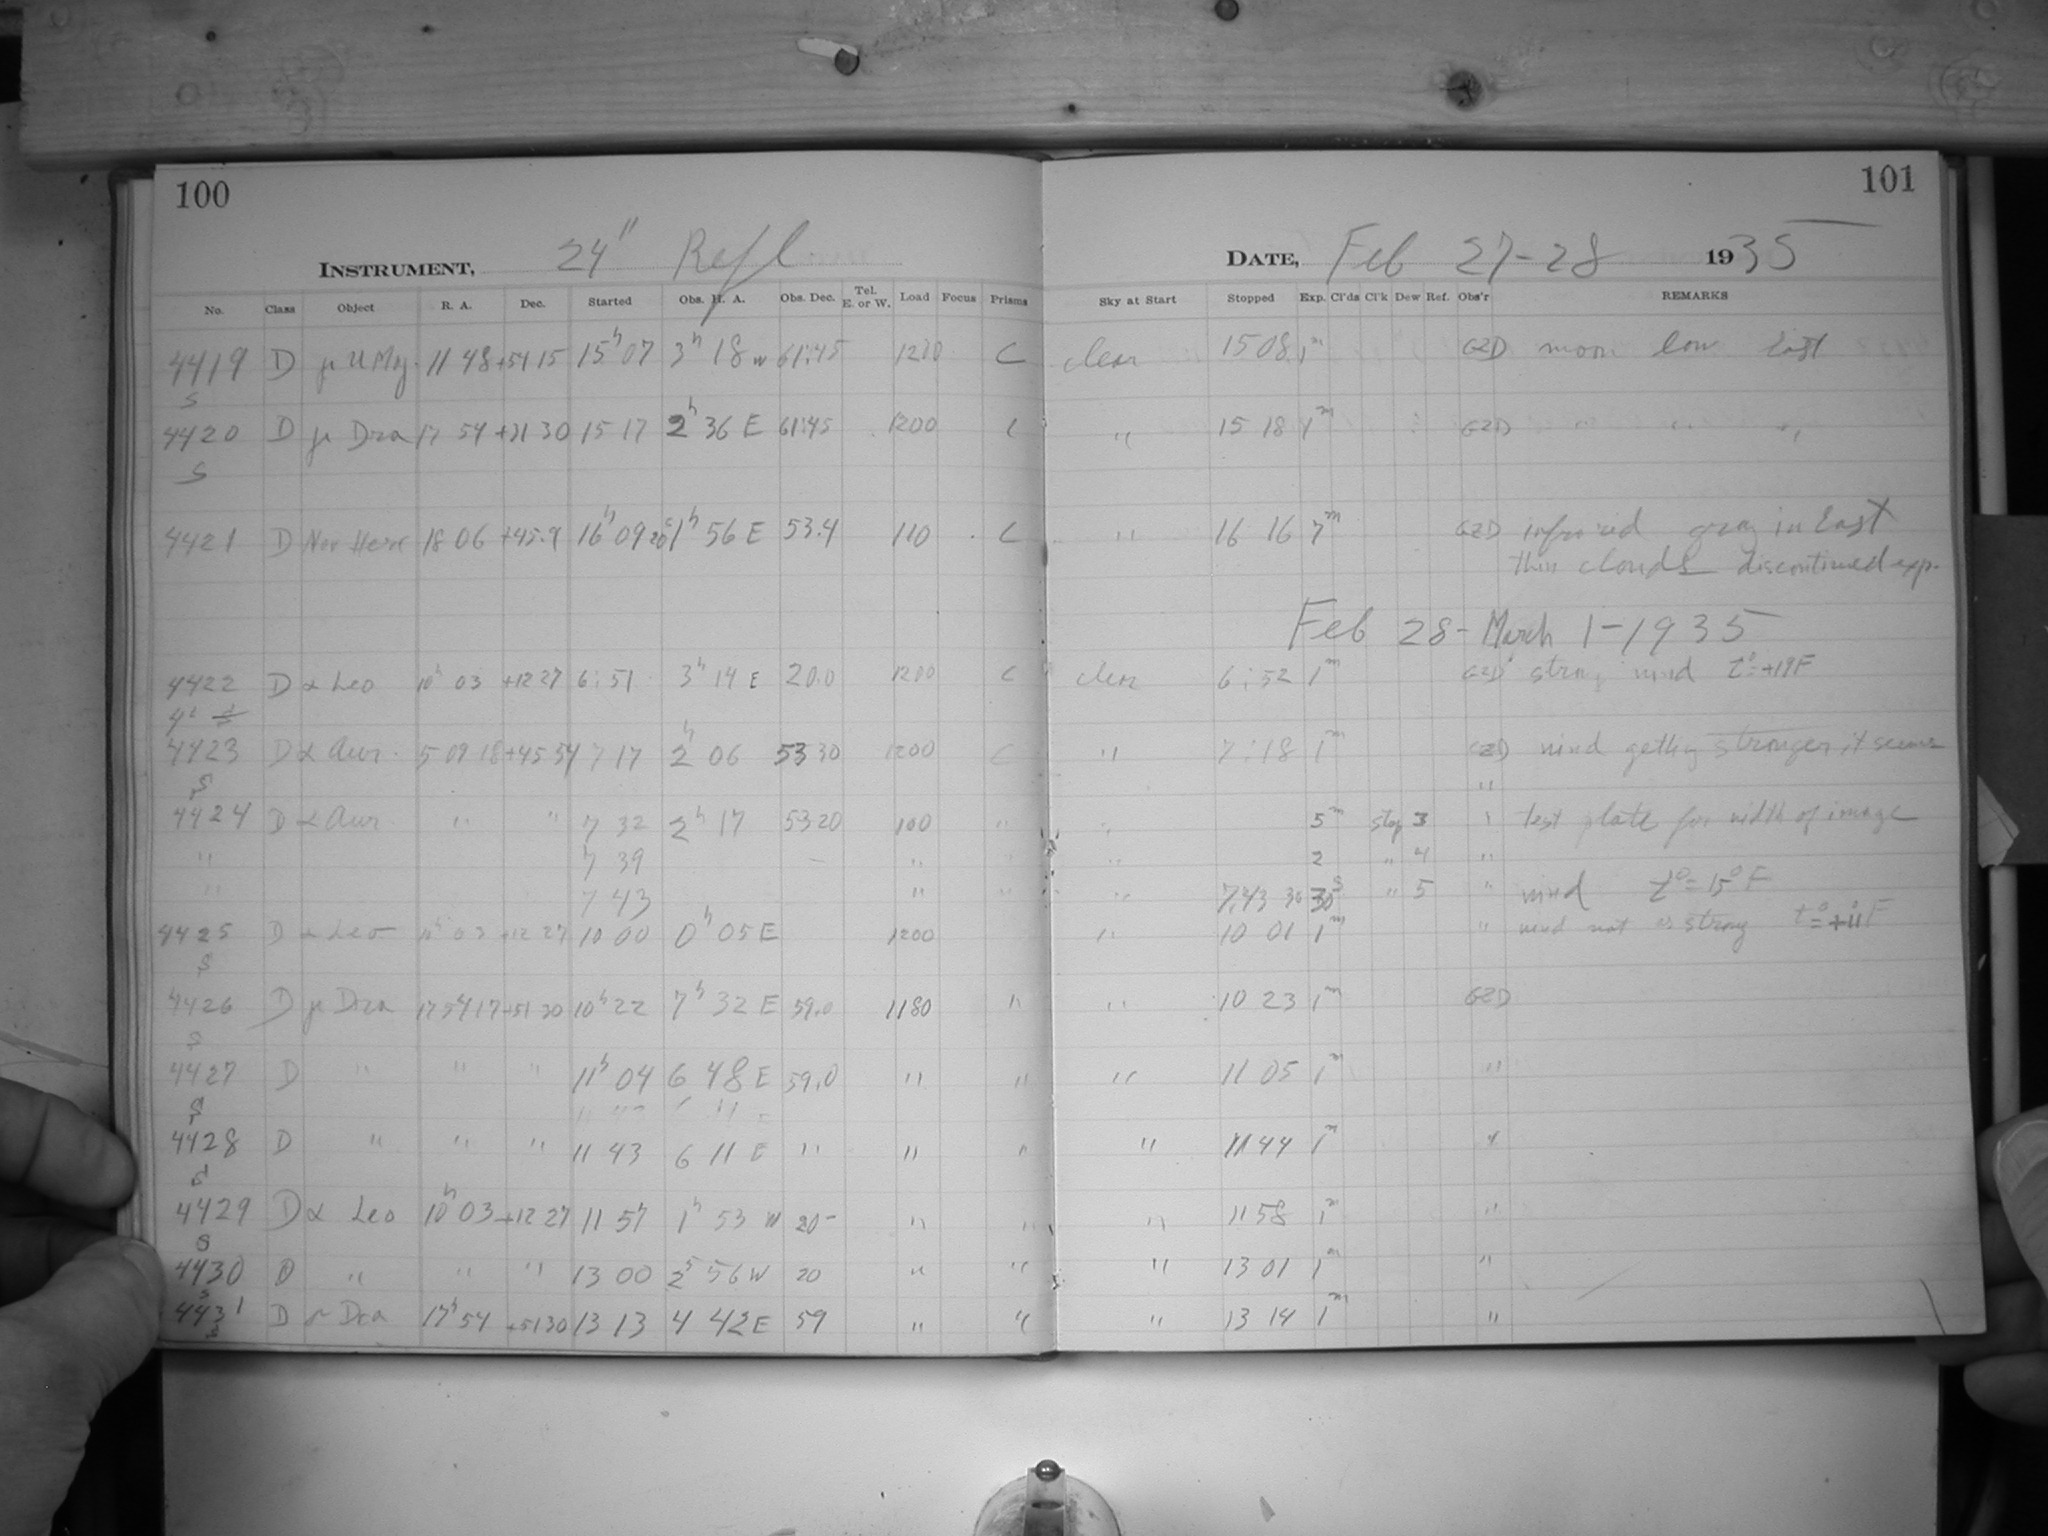 100
101
INSTRUMENT, 24" Refl
DATE, Feb 27-28 1935
No. Class Object R. A. Dec. Started Obs. H. A. Obs. Dec. Tel. E. or W. Load Focus Prisms Sky at Start Stopped Exp. Cl'ds Cl'k Dew Ref. Obs'r REMARKS
4419 D 11 48 +54 15 15h 07 3h 18 w 61:45 C clear 15 08 1m GZD moon low East
S
4420 D μ Dra 17 54 15 17 2h 36 E 61:45 1200 C " 15 18 1m GZD " " "
S
4421 D Nov Herc 18 06 +45.9 16h 09 20s 1h 56 E 53.4 110 C " 16 16 7m GZD infrared gray in East
thin clouds discontinued exp.
Feb 28 - March 1 - 1935
4422 D α Leo 10h 03 +12 27 6:51 3h 14 E 20.0 1200 C clear 6:52 1m GZD strong wind t°=+19F
4423 D α Aur. 5 09 18 +45 54 7 17 2h 06 53 30 1200 C " 7:18 1m GZD wind getting stronger, it seems
S "
4424 D α Aur. " " 7 32 2h 17 53 20 100 " " 5m stop 3 " test plate for width of image
" 7 39 " " " 2 " 4 "
" 7 43 " " " 7:43 30 30s " 5 " wind t°=15°F
4425 D α Leo 10h 03 +12 27 10 00 0h 05 E 1200 " 10 01 1m " wind not as strong t°=+11F
S
4426 D μ Dra 17 54 17 +51 30 10h 22 7h 32 E 59.0 1180 " " 10 23 1m GZD
S
4427 D " " " 11h 04 6 48 E 59.0 " " " 11 05 1m "
S
4428 D " " " 11 43 6 11 E " " " " 11 44 1m "
S
4429 D α Leo 10h 03 +12 27 11 57 1h 53 W 20- " " " 11 58 1m "
S
4430 D " " " 13 00 2 56 W 20 " " " 13 01 1m "
S
4431 D Dra 17h 54 +51 30 13 13 4 42 E 59 " " " 13 14 1m "
S